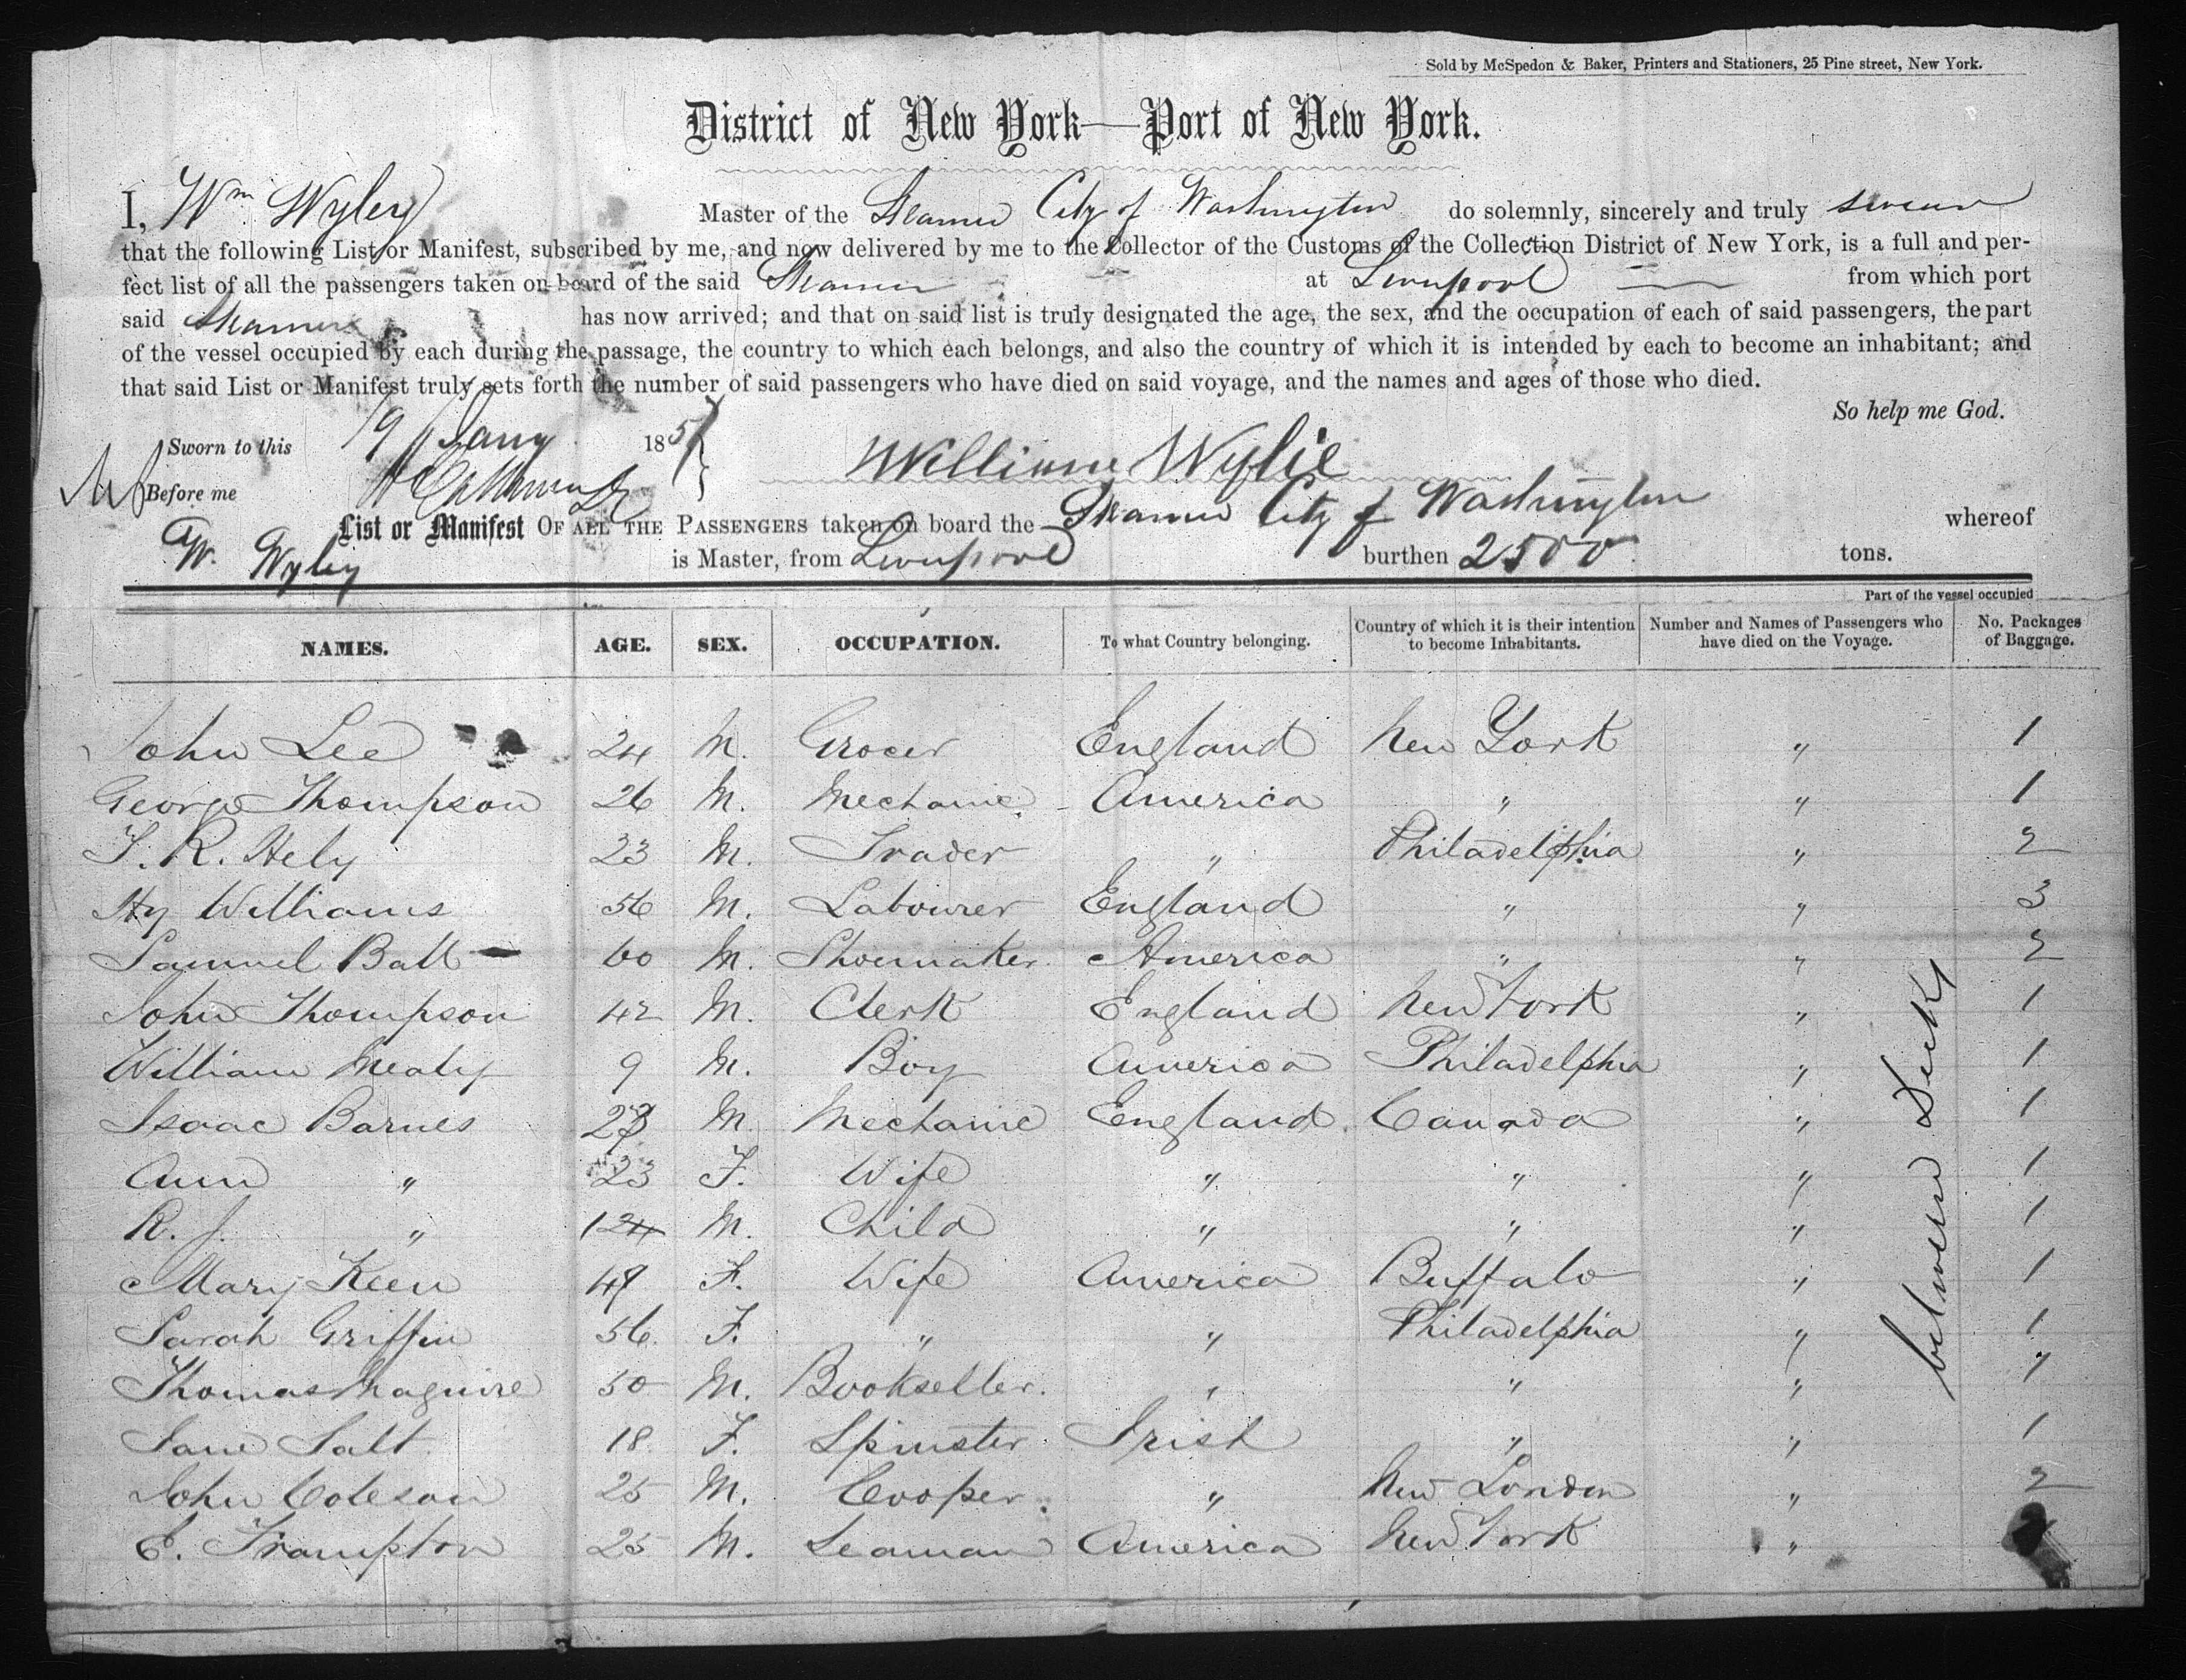 Sold by McSpedon & Baker, Printers and Stationers, 25 Pine street, New York.
District of New York—Port of New York.
I, Wm Wyley Master of the Steamer City of Washington do solemnly, sincerely and truly swear
that the following List or Manifest, subscribed by me, and now delivered by me to the Collector of the Customs of the Collection District of New York, is a full and per-
fect list of all the passengers taken on board of the said Steamer at Liverpool from which port
said Steamer has now arrived; and that on said list is truly designated the age, the sex, and the occupation of each of said passengers, the part
of the vessel occupied by each during the passage, the country to which each belongs, and also the country of which it is intended by each to become an inhabitant; and
that said List or Manifest truly sets forth the number of said passengers who have died on said voyage, and the names and ages of those who died.
So help me God.
Sworn to this 19 Jany 1857
William Wylie
Before me
List or Manifest OF ALL THE PASSENGERS taken on board the Steamer City of Washington whereof
W. Wyley is Master, from Liverpool burthen 2500 tons.
Part of the vessel occupied
NAMES. AGE. SEX. OCCUPATION. To what Country belonging. Country of which it is their intention to become Inhabitants. Number and Names of Passengers who have died on the Voyage. No. Packages of Baggage.
John Lee 24 M. Grocer England New York " 1
George Thompson 26 M. Mechanic America " " 1
J. R. Hely 23 M. Trader " Philadelphia " 2
Hy Williams 56 M. Labourer England " " 3
Samuel Ball 60 M. Shoemaker America " " 2
John Thompson 42 M. Clerk England New York " 1
William Mealy 9 M. Boy America Philadelphia " 1
Isaac Barnes M. Mechanic England Canada " 1
Ann " 23 F. Wife " " " 1
R. J. " 12 M. Child " " " 1
Mary Keen 49 F. Wife America Buffalo " 1
Sarah Griffin 56 F. " " Philadelphia " 1
Thomas Maguire 50 M. Bookseller. " " " 1
Jane Salt 18 F. Spinster Irish " " 1
John Coleson 25 M. Cooper " New London " 2
E. Frampton 25 M. Seaman America New York "
between Decks